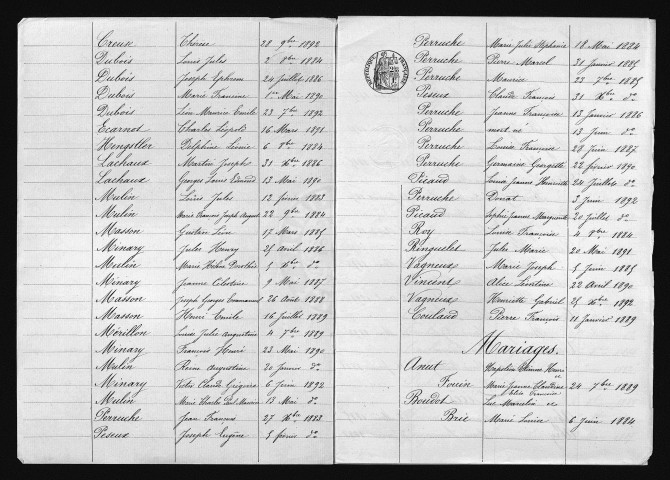 Creuse Thérèse 28 9bre 1892
Dubois Louis Jules 2 8bre 1884
Dubois Joseph Ephrem 24 Juillet 1886
Dubois Marie Francine 1er Mai 1890
Dubois Léon Maurice Emile 23 7bre 1892
Ecarnot Charles Léopold 16 Mars 1891
Hingsller Delphine Léonie 6 8bre 1884
Lachaux Martin Joseph 31 Xbre 1886
Lachaux Georges Louis Edmond 13 Mai 1890
Mulin Louis Jules 12 février 1883
Mulin Marie Francois Joseph August 22 9bre 1884
Masson Gustave Léon 17 Mars 1885
Minary Jules Henry 25 Avril 1886
Mulin Marie Hélène 5 Xbre do
Minary Jeanne Célestine 9 Mai 1887
Masson Joseph Georges Emmanuel 26 Août 1888
Masson Henri Emile 16 Juillet 1889
Mérillon Louise Julie Augustine 4 7bre 1889
Minary Francois Henri 23 Mai 1890
Mulin Augustine 20 Janvier do
Minary Victor Claude 6 Juin 1892
Mulin Marie Charles Paul Maurice 13 Mai do
Perruche Jean François 27 Xbre 1883
Peseux Joseph Eugène 5 février do
Perruche Marie Julie Stéphanie 18 Mai 1884
REPUBLIQUE FRANCAISE
Perruche Pierre Marcel 31 Janvier 1885
Perruche Maurice 22 7bre 1885
Peseux Claude François 31 Xbre do
Perruche Jeanne Françoise 13 Janvier 1886
Perruche mort né 13 Juin do
Perruche Louise Françoise 28 Juin 1887
Perruche Germaine Georgette 22 février 1890
Picaud Louise Jeanne Henriette 24 Juillet do
Perruche Donat 3 Juin 1892
Picaud Sophie Jeanne Marguerite 20 Juillet do
Roy Louise Françoise 20 8bre 1884
Renguelet Jules Marie 20 Mai 1891
Vagneux Marie Joseph 5 Juin 1885
Vincent Alice Léontine 22 Avril 1890
Vagneux Henriette Gabriel 25 Xbre 1892
Coulaud Pierre François 11 Janvier 1889
Mariages.
Anut Napoléon Etienne Henri
et
Fouin Marie Jeanne Claudine 24 7bre 1889
Boudot Luc et
Brie Marie Louise 6 Juin 1884